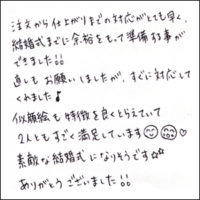 注文から仕上がりまでの対応がとても早く、
結婚式までに余裕をもって準備する事が
できました!!
直しもお願いしましたが、すぐに対応して
くれました♪
似顔絵も特徴を良くとらえていて
2人ともすごく満足しています😊😊♡
素敵な結婚式になりそうです☆☆
ありがとうございました!!